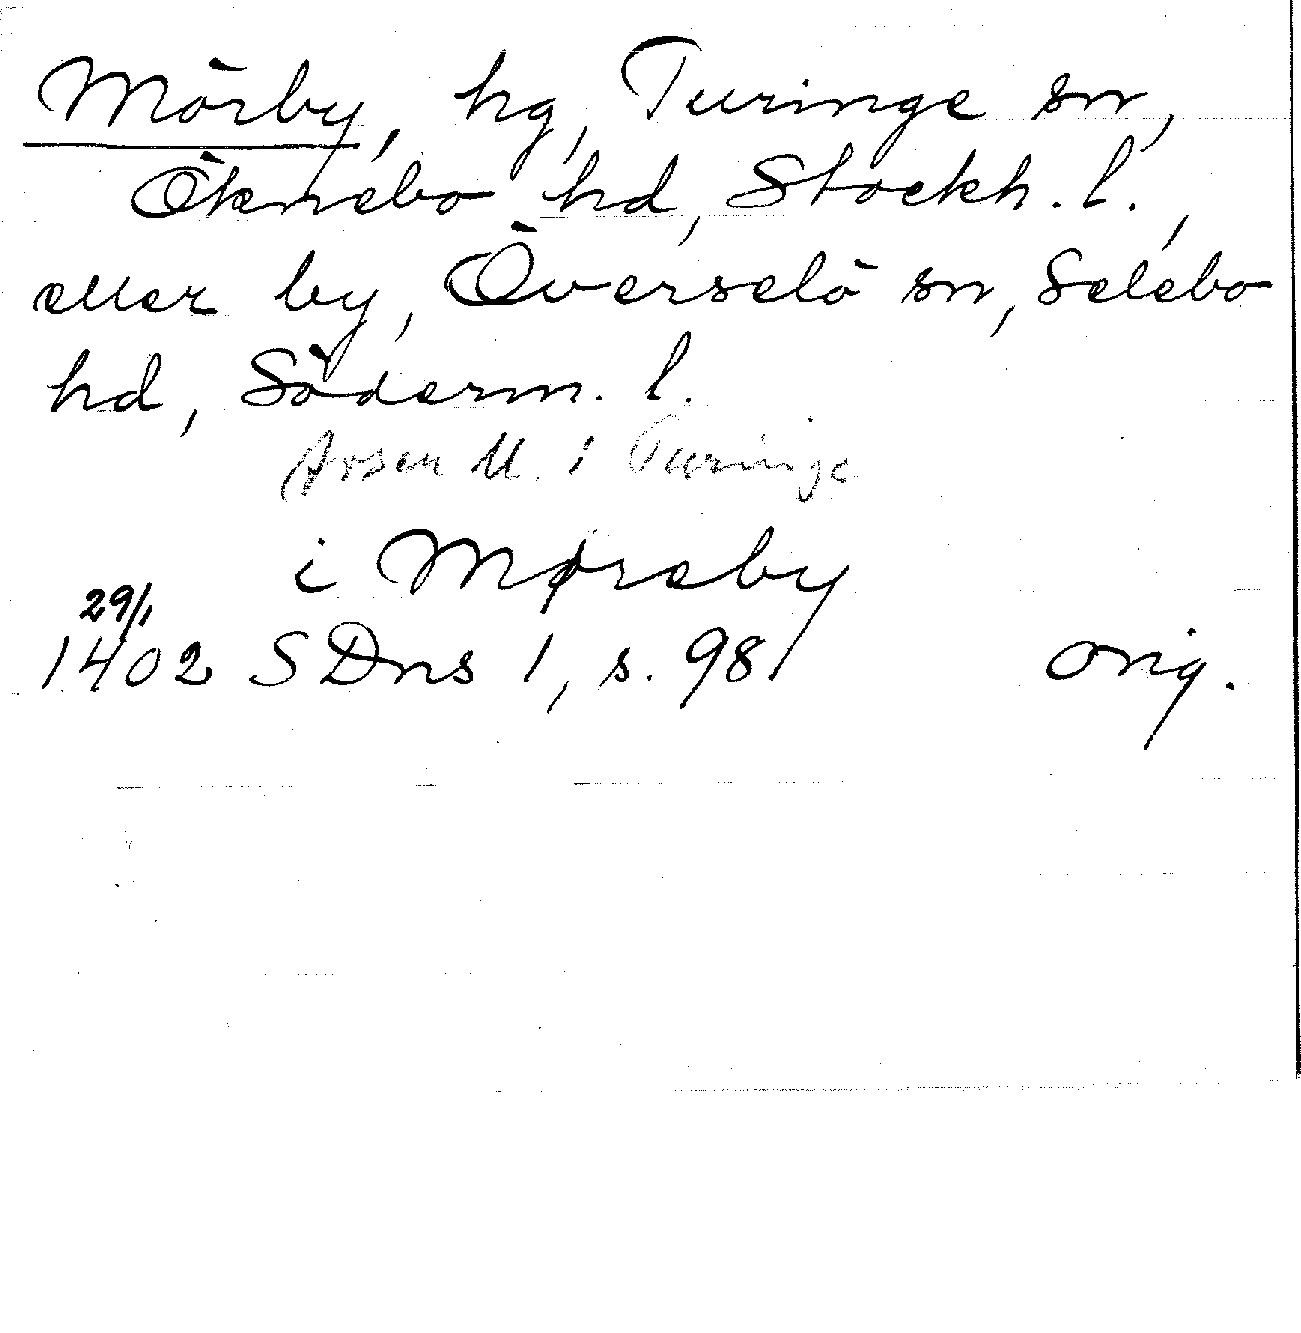 Mörby, hg, Turinge sn,
Öknebo hd, Stockh. l.,
eller by, Överselö sn, Selebo
hd, Söderm. l.
M. i Turinge
i Møreby
29/1
1402 SDns 1, s. 98 orig.